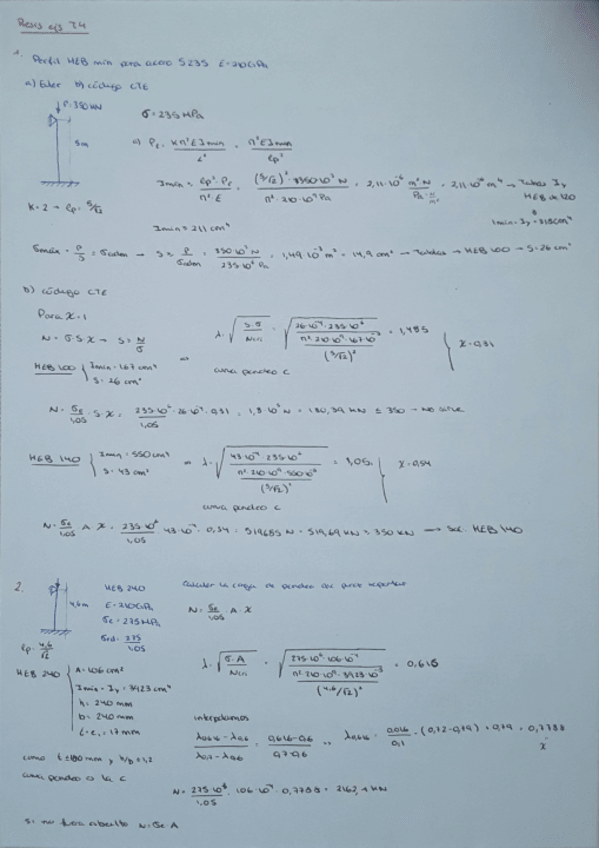 Resis ejs T4
1. Perfil HEB min para acero S235 E=210GPa
a) Euler b) código CTE
↓P=350 KN
σ=235 MPa
5m
a) Pε = Kπ²EImin / L² = π²EImin / ℓp²
Imin = ℓp²·Pε / π²·E = (5/√2)²·350·10³ N / π²·210·10⁹ Pa = 2,11·10⁻⁶ m⁴ → Tablas Iy
HEB de 120
K=2 → ℓp = 5/√2
Imin = 211 cm⁴
Imin = Iy = 318 cm⁴
σmáx = P/S = σadm → S = P/σadm = 350·10³ N / 235·10⁶ Pa = 1,49·10⁻³ m² = 14,9 cm² → Tablas → HEB 100 → S=26 cm²
b) código CTE
Para χ=1
N = σ·S·χ → S = N/σ
HEB 100 { Imin = 167 cm⁴
S = 26 cm²
λ = √(S·σ / Ncri) = √(26·10⁻⁴·235·10⁶ / (π²·210·10⁹·167·10⁻⁸ / (5/√2)²)) = 1,485
curva pandeo c
χ=0,31
N = σe/1,05 · S·χ = 235·10⁶·26·10⁻⁴·0,31 / 1,05 = 1,8·10⁵ N = 180,39 KN ≤ 350 → No sirve
HEB 140 { Imin = 550 cm⁴
S = 43 cm²
⇒ λ = √(43·10⁻⁴·235·10⁶ / (π²·210·10⁹·550·10⁻⁸ / (5/√2)²)) = 1,05
curva pandeo c
χ=0,54
N = σe/1,05 A χ = 235·10⁶/1,05 43·10⁻⁴·0,54 = 519685 N = 519,69 KN > 350 KN → Sol. HEB 140
2. HEB 240
Calcular la carga de pandeo que puede soportar
4,6m
E = 210GPa
σe = 275 MPa
σed = 275/1,05
N = σe/1,05 · A · χ
ℓp = 4,6/√2
HEB 240 { A = 106 cm²
Imin = Iy = 3923 cm⁴
h = 240 mm
b = 240 mm
t = e₁ = 17 mm
λ = √(σ·A / Ncri) = √(275·10⁶·106·10⁻⁴ / (π²·210·10⁹·3923·10⁻⁸ / (4,6/√2)²)) = 0,616
interpolamos
λ0,616 − λ0,6 / λ0,7 − λ0,6 = 0,616−0,6 / 0,7−0,6 → λ0,616 = 0,016/0,1 · (0,72−0,79) + 0,79 = 0,7788
χ
como t ≤ 100 mm y h/b ≤ 1,2
curva pandeo a la c
N = 275·10⁶/1,05 · 106·10⁻⁴ · 0,7788 = 2162,1 KN
si no fuera esbelto N = σe A